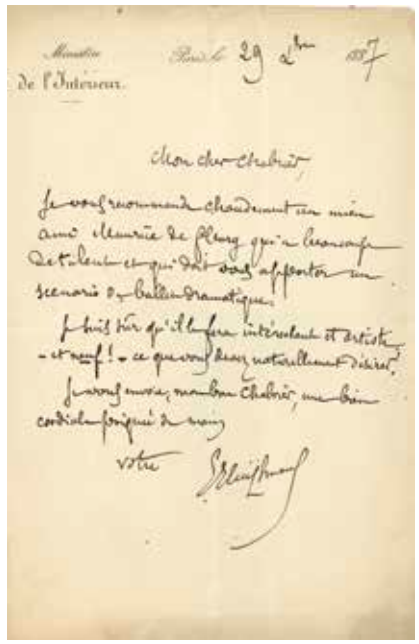 Ministère
de l'Intérieur.
Paris, le 29 Xbre 1887
Mon cher Chabrier,
Je vous recommande chaudement un mien
ami Maurice de Fleury qui a beaucoup
de talent et qui doit vous apporter un
scenario de ballet dramatique.
Je suis sûr qu'il le fera intéressant et artiste
- et neuf ! - ce que vous devez naturellement désirer.
Je vous envoie, mon bon Chabrier, une bien
cordiale poignée de main
votre